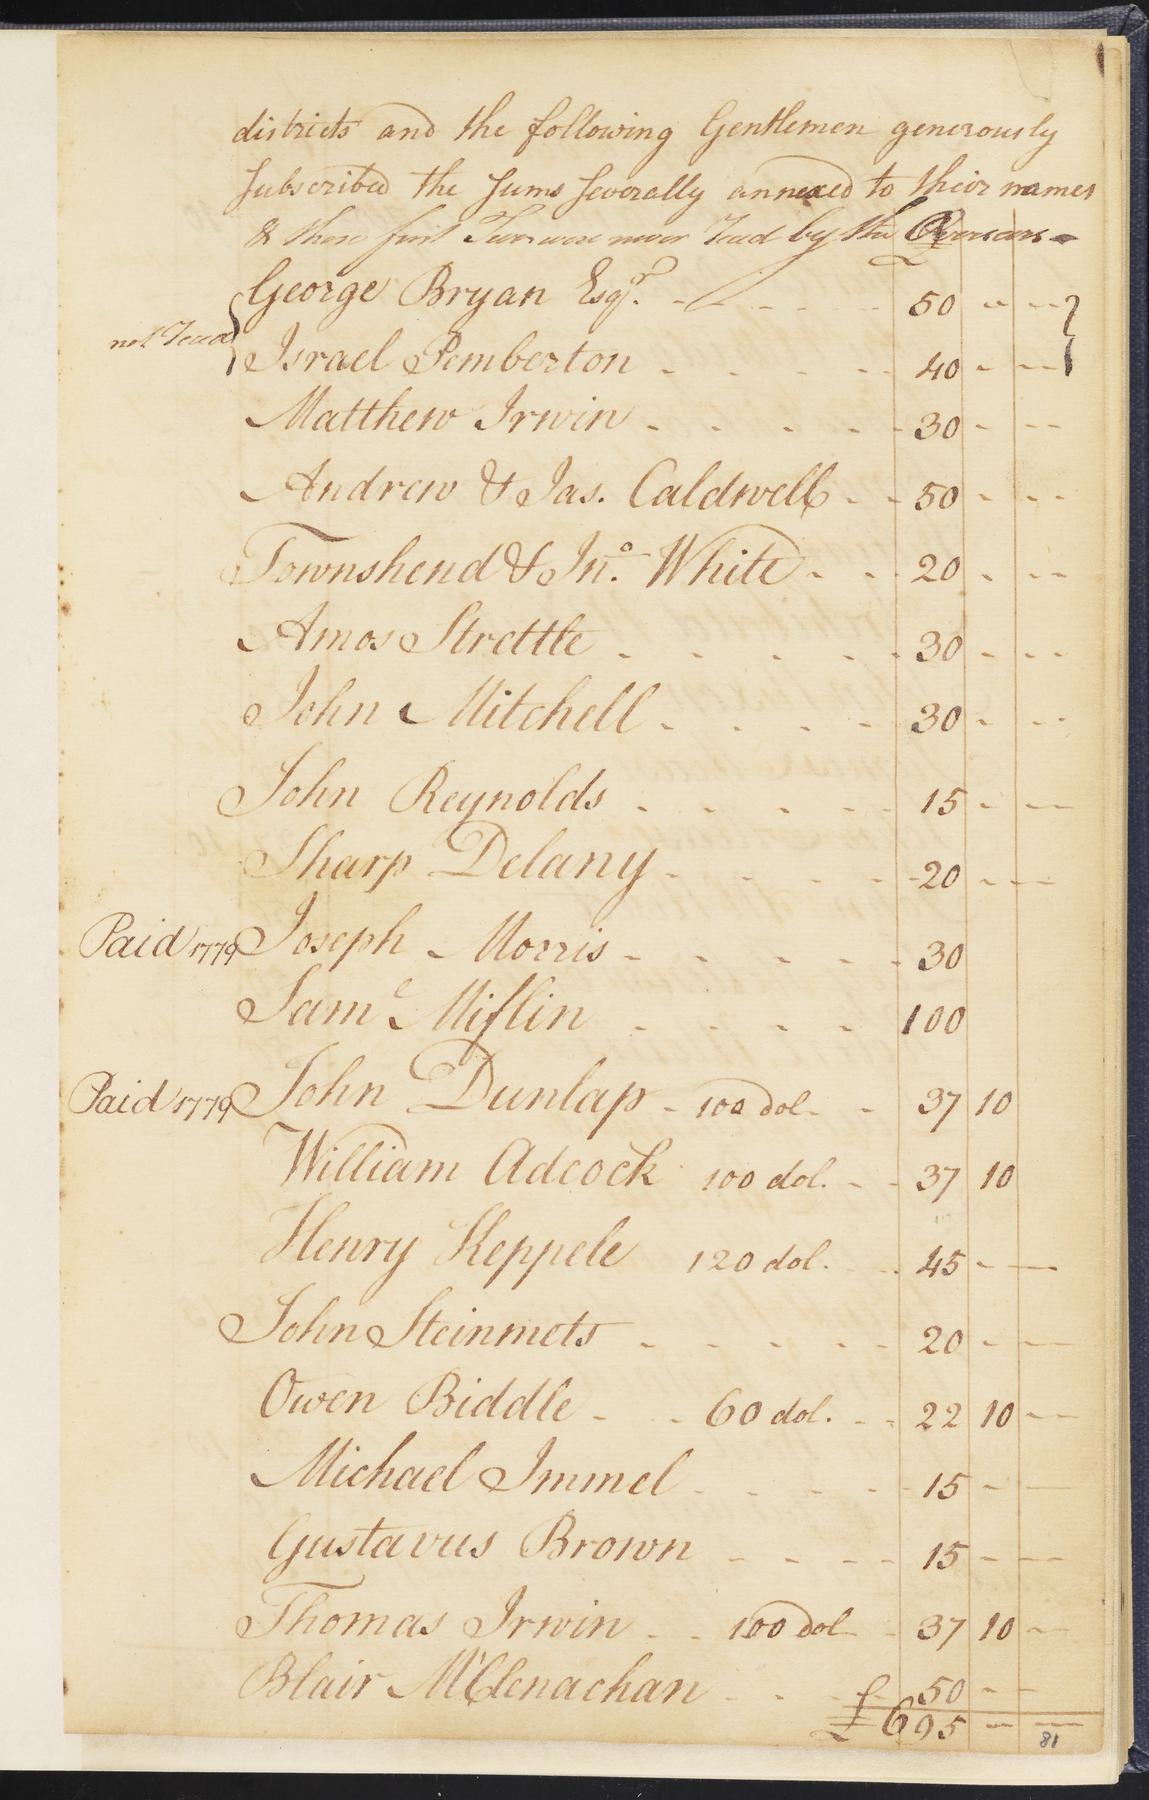 districts and the following Gentlemen generously
Subscribed the Sums Severally annexed to their names
& these first Two were never Tead by the Overseers -
George Bryan Esqr. - - - - 50 - -- }
not Tead { Israel Pemberton - - - - - 40 - --
Matthew Irwin - - - - - 30 - --
Andrew & Jas. Caldwell - - 50 - --
Townshend & Jno. White - - - 20 - --
Amos Strettle - - - - - 30 - --
John Mitchell - - - - - 30 - --
John Reynolds - - - - - 15 - --
Sharp Delany - - - - - 20 - --
Paid 1779 Joseph Morris - - - - - 30
Saml Miflin - - - - 100
Paid 1779 John Dunlap - 100 dol - - 37 10
William Adcock 100 dol. - - 37 10
Henry Keppele 120 dol. - 45 - --
John Steinmets - - - - - 20 - --
Owen Biddle - - 60 dol. - - 22 10 --
Michael Immel - - - - - 15 - --
Gustavus Brown - - - - 15 - --
Thomas Irwin - - 100 dol - 37 10 --
Blair McClenachan - - - 50 - --
£ 695 - --
81